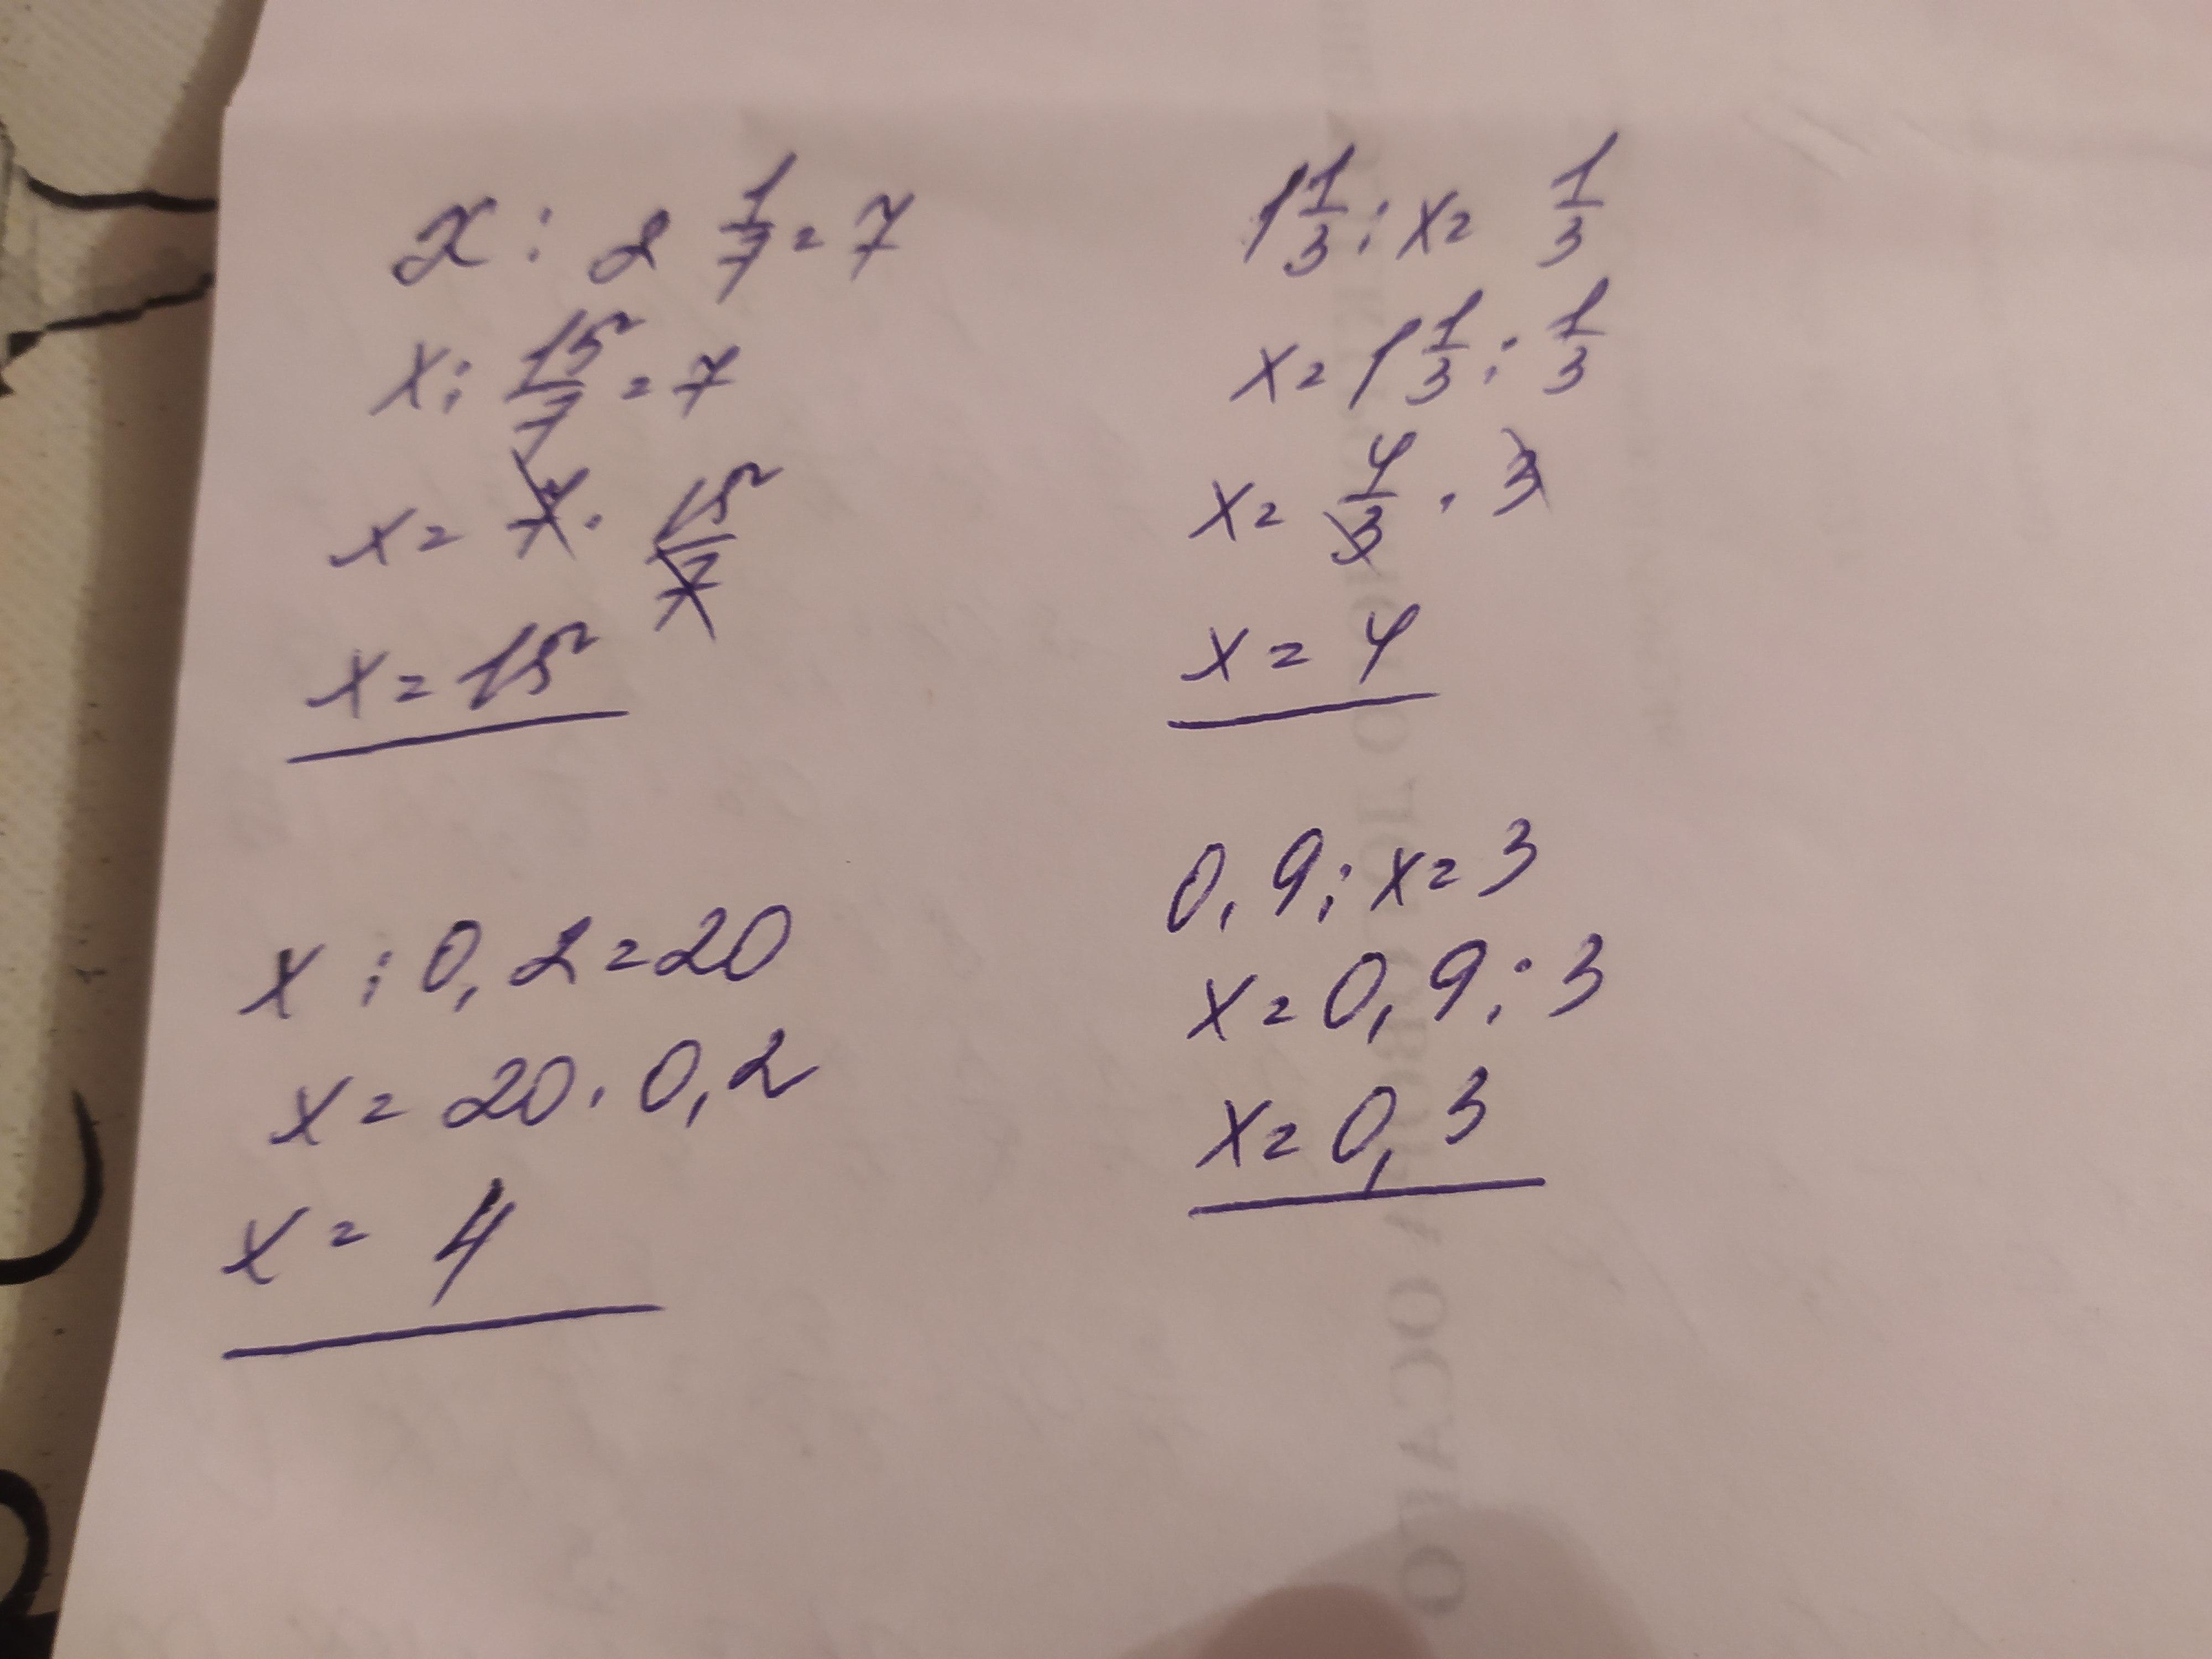 x : 2 1/7 = 7
x : 15/7 = 7
x = 7 · 15/7
x = 15
1 1/3 : x = 1/3
x = 1 1/3 : 1/3
x = 4/3 · 3
x = 4
x : 0,2 = 20
x = 20 · 0,2
x = 4
0,9 : x = 3
x = 0,9 : 3
x = 0,3